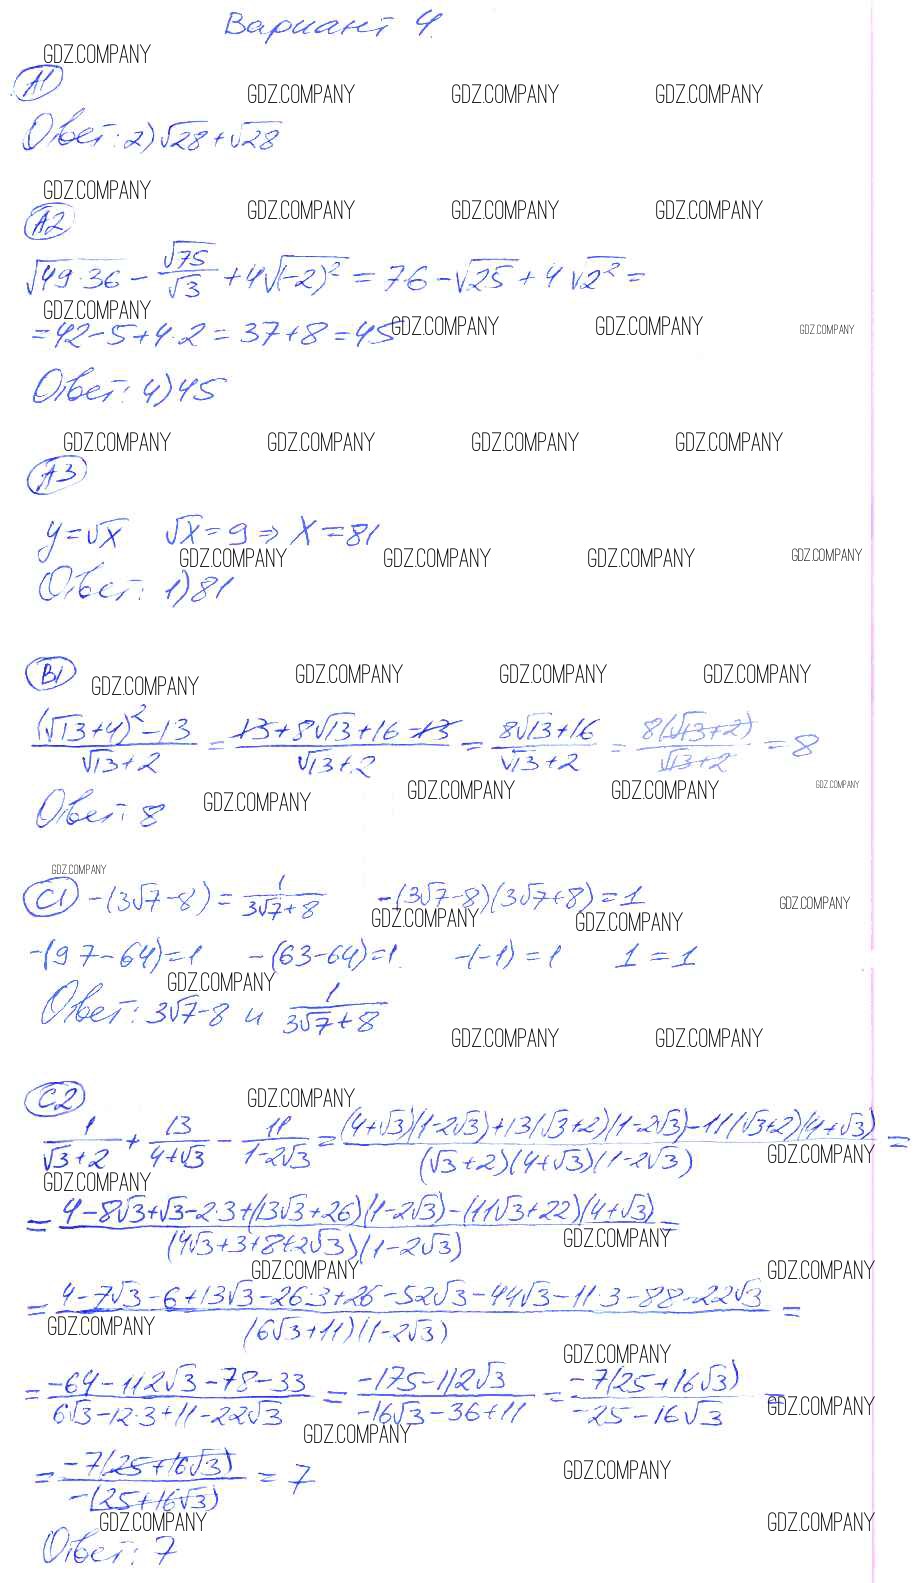 Вариант 4.
GDZ.COMPANY
А1
GDZ.COMPANY GDZ.COMPANY GDZ.COMPANY
Ответ: 2) √28 + √28
GDZ.COMPANY
GDZ.COMPANY GDZ.COMPANY GDZ.COMPANY
А2
√(49·36) − √75/√3 + 4√(−2)² = 7·6 − √25 + 4√2² =
GDZ.COMPANY
= 42 − 5 + 4·2 = 37 + 8 = 45 GDZ.COMPANY GDZ.COMPANY GDZ.COMPANY
Ответ: 4) 45
GDZ.COMPANY GDZ.COMPANY GDZ.COMPANY GDZ.COMPANY
А3
y = √x √x = 9 ⇒ x = 81
GDZ.COMPANY GDZ.COMPANY GDZ.COMPANY GDZ.COMPANY
Ответ: 1) 81
В1
GDZ.COMPANY GDZ.COMPANY GDZ.COMPANY GDZ.COMPANY
((√13+4)² − 13)/(√13+2) = (13+8√13+16−13)/(√13+2) = (8√13+16)/(√13+2) = 8(√13+2)/(√13+2) = 8
GDZ.COMPANY GDZ.COMPANY GDZ.COMPANY GDZ.COMPANY
Ответ: 8
GDZ.COMPANY
С1 −(3√7−8) = 1/(3√7+8) −(3√7−8)(3√7+8) = 1
GDZ.COMPANY GDZ.COMPANY GDZ.COMPANY
−(9·7−64)=1 −(63−64)=1. −(−1) = 1 1 = 1
GDZ.COMPANY
Ответ: 3√7−8 и 1/(3√7+8)
GDZ.COMPANY GDZ.COMPANY
С2 GDZ.COMPANY
1/(√3+2) + 13/(4+√3) − 11/(1−2√3) = ((4+√3)(1−2√3)+13(√3+2)(1−2√3)−11(√3+2)(4+√3))/((√3+2)(4+√3)(1−2√3)) =
GDZ.COMPANY GDZ.COMPANY
= (4−8√3+√3−2·3+(13√3+26)(1−2√3)−(11√3+22)(4+√3))/((4√3+3+8+2√3)(1−2√3)) =
GDZ.COMPANY
GDZ.COMPANY GDZ.COMPANY
= (4−7√3−6+13√3−26·3+26−52√3−44√3−11·3−88−22√3)/((6√3+11)(1−2√3)) =
GDZ.COMPANY
GDZ.COMPANY
= (−64−112√3−78−33)/(6√3−12·3+11−22√3) = (−175−112√3)/(−16√3−36+11) = −7(25+16√3)/(−25−16√3) =
GDZ.COMPANY
GDZ.COMPANY
= −7(25+16√3)/(−(25+16√3)) = 7
GDZ.COMPANY
GDZ.COMPANY GDZ.COMPANY
Ответ: 7